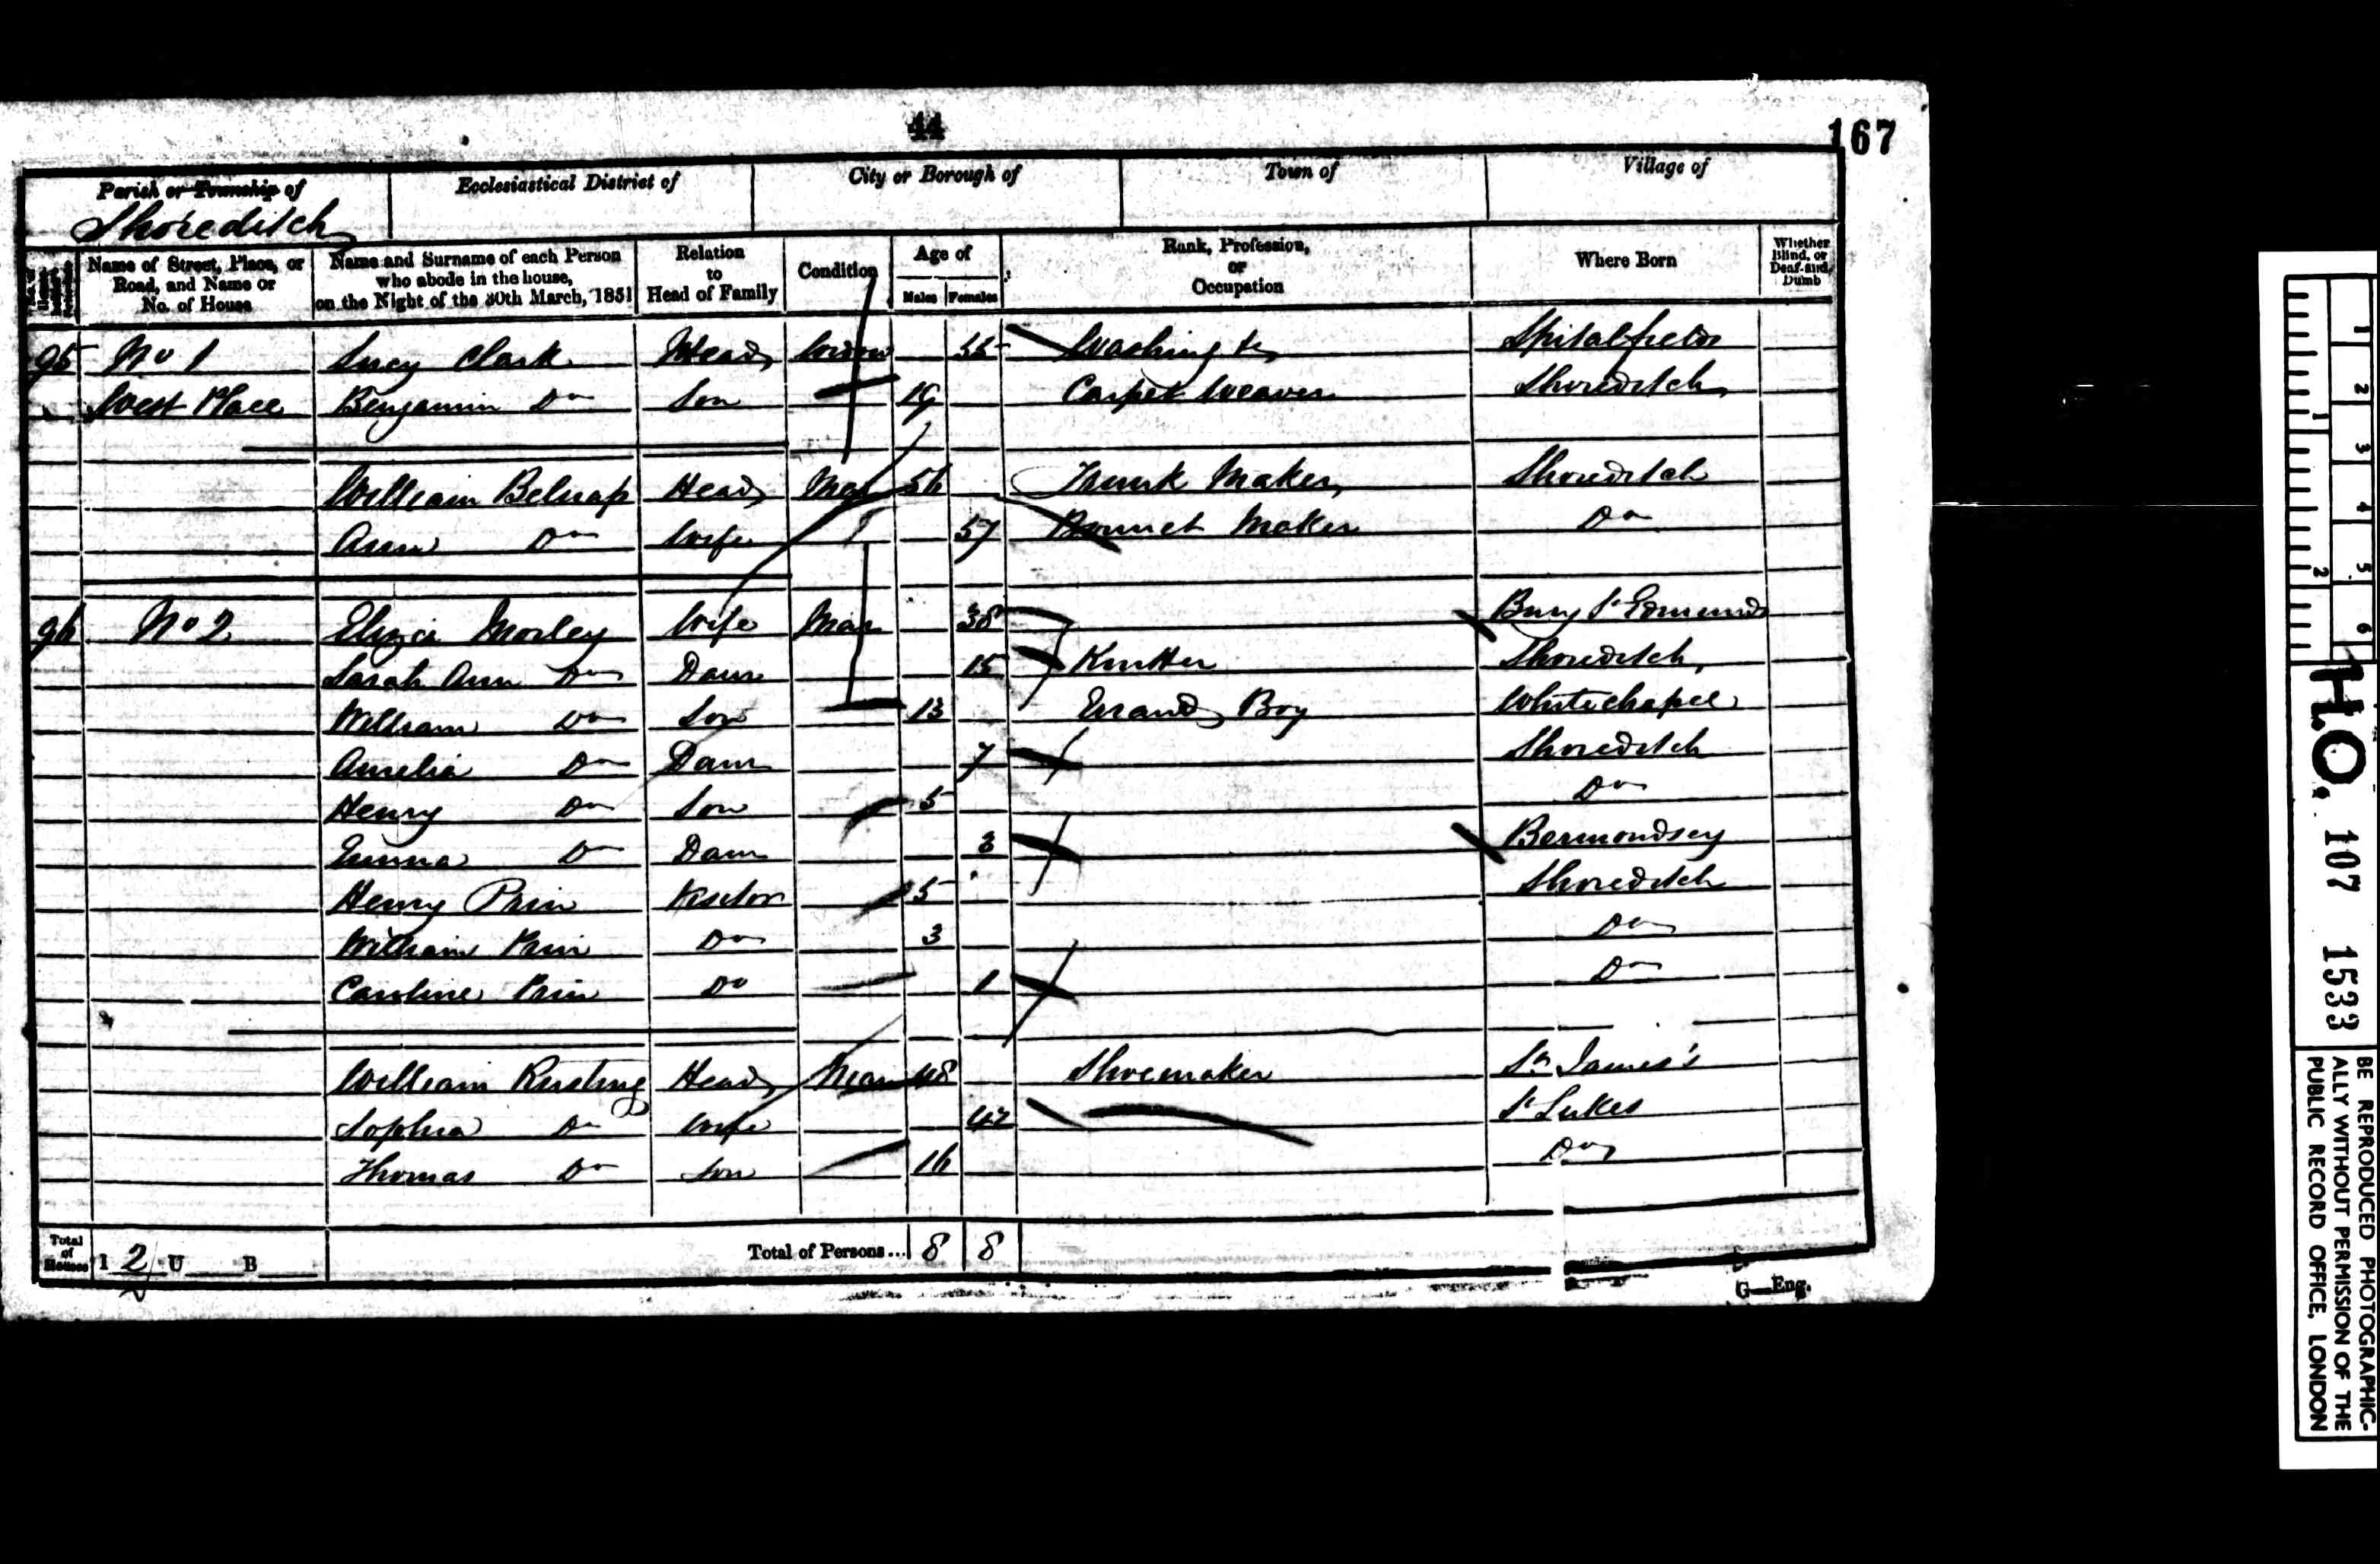 44
167
Parish or Township of Ecclesiastical District of City or Borough of Town of Village of
Shoreditch
Name of Street, Place, or Road, and Name or No. of House
Name and Surname of each Person who abode in the house, on the Night of the 30th March, 1851
Relation to Head of Family
Condition
Age of
Males Females
Rank, Profession, or Occupation
Where Born
Whether Blind, or Deaf-and-Dumb
95 No 1 Lucy Clark Head Widow 55 Washing &c Spitalfields
West Place Benjamin Do Son 19 Carpet Weaver Shoreditch
William Belnap Head Mar 56 Trunk Maker Shoreditch
Ann Do Wife 57 Bonnet Maker Do
96 No 2 Eliza Morley Wife Mar 38 Bury St Edmunds
Sarah Ann Do Daur 15 Knitter Shoreditch
William Do Son 13 Errand Boy Whitechapel
Amelia Do Daur 7 Shoreditch
Henry Do Son 5 Do
Emma Do Daur 3 Bermondsey
Henry Prin Visitor 5 Shoreditch
William Prin Do 3 Do
Caroline Prin Do 1 Do
William Rusting Head Mar 48 Shoemaker St James's
Sophia Do Wife 42 St Lukes
Thomas Do Son 16 Do
Total of Houses I 2 U B Total of Persons... 8 8
G—Eng.
1 2 3 4 5 6
1 2
H.O. 107 1533
BE REPRODUCED PHOTOGRAPHIC-
ALLY WITHOUT PERMISSION OF THE
PUBLIC RECORD OFFICE, LONDON